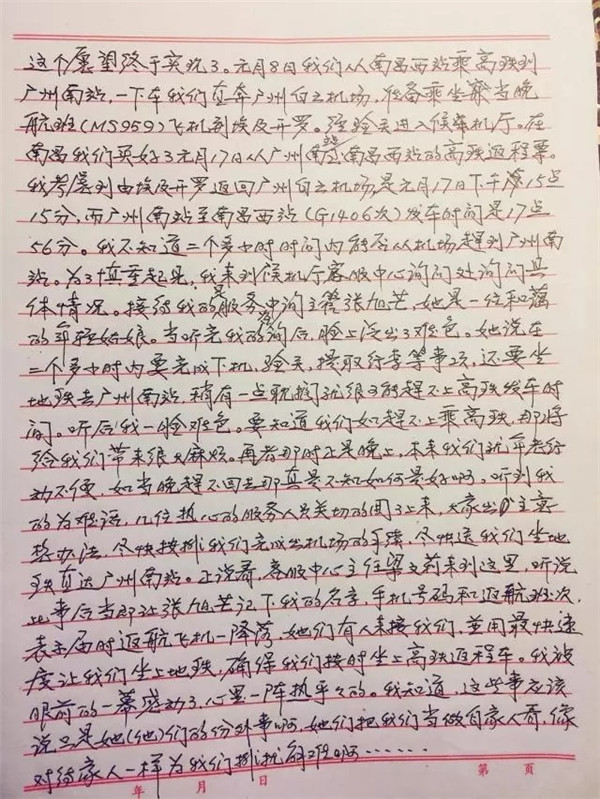 这个愿望终于实现了。元月8日我们从南昌西站乘高铁到
广州南站，一下车我们直奔广州白云机场，准备乘坐当晚
航班(MS959)飞机到埃及开罗。经验关进入候机厅。在
南昌我们买好了元月17日从广州南站到南昌西站的高铁返程票。
我考虑到由埃及开罗返回广州白云机场，是元月17日下午15点
15分，而广州南站至南昌西站(G1406次)发车时间是17点
56分。我不知道二个多小时时间内能否从机场赶到广州南
站。为了慎重起见，我来到候机厅客服中心询问处询问具
体情况。接待我的是服务咨询主管张旭芒，她是一位和蔼
的年轻姑娘。当听完我的咨询后，脸上泛出了难色。她说在
二个多小时内要完成下机，验关，提取行李等事项，还要坐
地铁去广州南站，稍有一点耽搁就很可能赶不上高铁发车时
间。听后我一脸难色。要知道我们如赶不上乘高铁，那将
给我们带来很大麻烦。再者那时正是晚上，本来我们就年老行
动不便，如当晚赶不回去那真是不知如何是好啊。听到我
的为难话，几位热心的服务人员关切的围了上来，大家出主意
想办法，尽快按排我们完成出机场的手续，尽快送我们坐地
铁直达广州南站。正说着，客服中心主任梁文莉来到这里，听说
此事后当即让张旭芒记下我的名字，手机号码和返航班次，
表示届时返航飞机一降落，她们有人来接我们，并用最快速
度让我们坐上地铁，确保我们按时坐上高铁返程车。我被
眼前的一幕感动了，心里一阵热乎乎的。我知道，这些事应该
说只是她(他)们的份外事啊，她们把我们当做自家人看，像
对待家人一样为我们排忧解难啊……
年 月 日
第 页